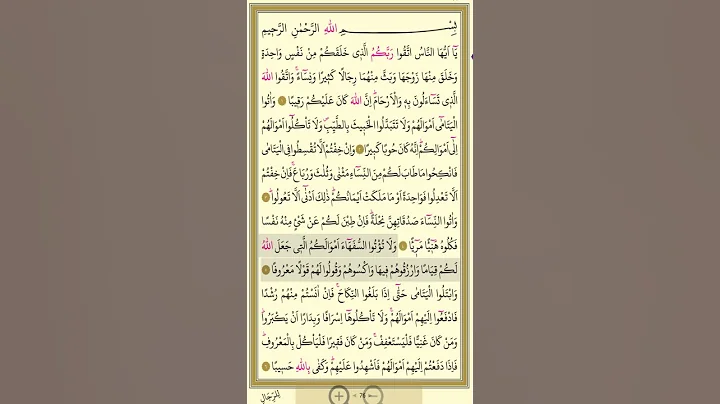 بِسْمِ اللهِ الرَّحْمٰنِ الرَّح۪يمِ
يَٓا اَيُّهَا النَّاسُ اتَّقُوا رَبَّكُمُ الَّذ۪ي خَلَقَكُمْ مِنْ نَفْسٍ وَاحِدَةٍ
وَخَلَقَ مِنْهَا زَوْجَهَا وَبَثَّ مِنْهُمَا رِجَالًا كَث۪يرًا وَنِسَٓاءًۚ وَاتَّقُوا اللهَ
الَّذ۪ي تَسَٓاءَلُونَ بِه۪ وَالْاَرْحَامَۜ اِنَّ اللهَ كَانَ عَلَيْكُمْ رَق۪يبًا ۞ وَاٰتُوا
الْيَتَامٰٓى اَمْوَالَهُمْ وَلَا تَتَبَدَّلُوا الْخَب۪يثَ بِالطَّيِّبِۖ وَلَا تَأْكُلُٓوا اَمْوَالَهُمْ
اِلٰٓى اَمْوَالِكُمْۜ اِنَّهُ كَانَ حُوبًا كَب۪يرًا ۞ وَاِنْ خِفْتُمْ اَلَّا تُقْسِطُوا فِي الْيَتَامٰى
فَانْكِحُوا مَا طَابَ لَكُمْ مِنَ النِّسَٓاءِ مَثْنٰى وَثُلٰثَ وَرُبَاعَۚ فَاِنْ خِفْتُمْ
اَلَّا تَعْدِلُوا فَوَاحِدَةً اَوْ مَا مَلَكَتْ اَيْمَانُكُمْۜ ذٰلِكَ اَدْنٰٓى اَلَّا تَعُولُواۜ ۞
وَاٰتُوا النِّسَٓاءَ صَدُقَاتِهِنَّ نِحْلَةًۜ فَاِنْ طِبْنَ لَكُمْ عَنْ شَيْءٍ مِنْهُ نَفْسًا
فَكُلُوهُ هَن۪ٓيئًا مَر۪ٓيئًا ۞ وَلَا تُؤْتُوا السُّفَهَٓاءَ اَمْوَالَكُمُ الَّت۪ي جَعَلَ اللهُ
لَكُمْ قِيَامًا وَارْزُقُوهُمْ ف۪يهَا وَاكْسُوهُمْ وَقُولُوا لَهُمْ قَوْلًا مَعْرُوفًا ۞
وَابْتَلُوا الْيَتَامٰى حَتّٰٓى اِذَا بَلَغُوا النِّكَاحَۚ فَاِنْ اٰنَسْتُمْ مِنْهُمْ رُشْدًا
فَادْفَعُٓوا اِلَيْهِمْ اَمْوَالَهُمْۚ وَلَا تَأْكُلُوهَٓا اِسْرَافًا وَبِدَارًا اَنْ يَكْبَرُواۜ
وَمَنْ كَانَ غَنِيًّا فَلْيَسْتَعْفِفْۚ وَمَنْ كَانَ فَق۪يرًا فَلْيَأْكُلْ بِالْمَعْرُوفِۜ
فَاِذَا دَفَعْتُمْ اِلَيْهِمْ اَمْوَالَهُمْ فَاَشْهِدُوا عَلَيْهِمْۜ وَكَفٰى بِاللهِ حَس۪يبًا ۞
لِلرِّجَالِ